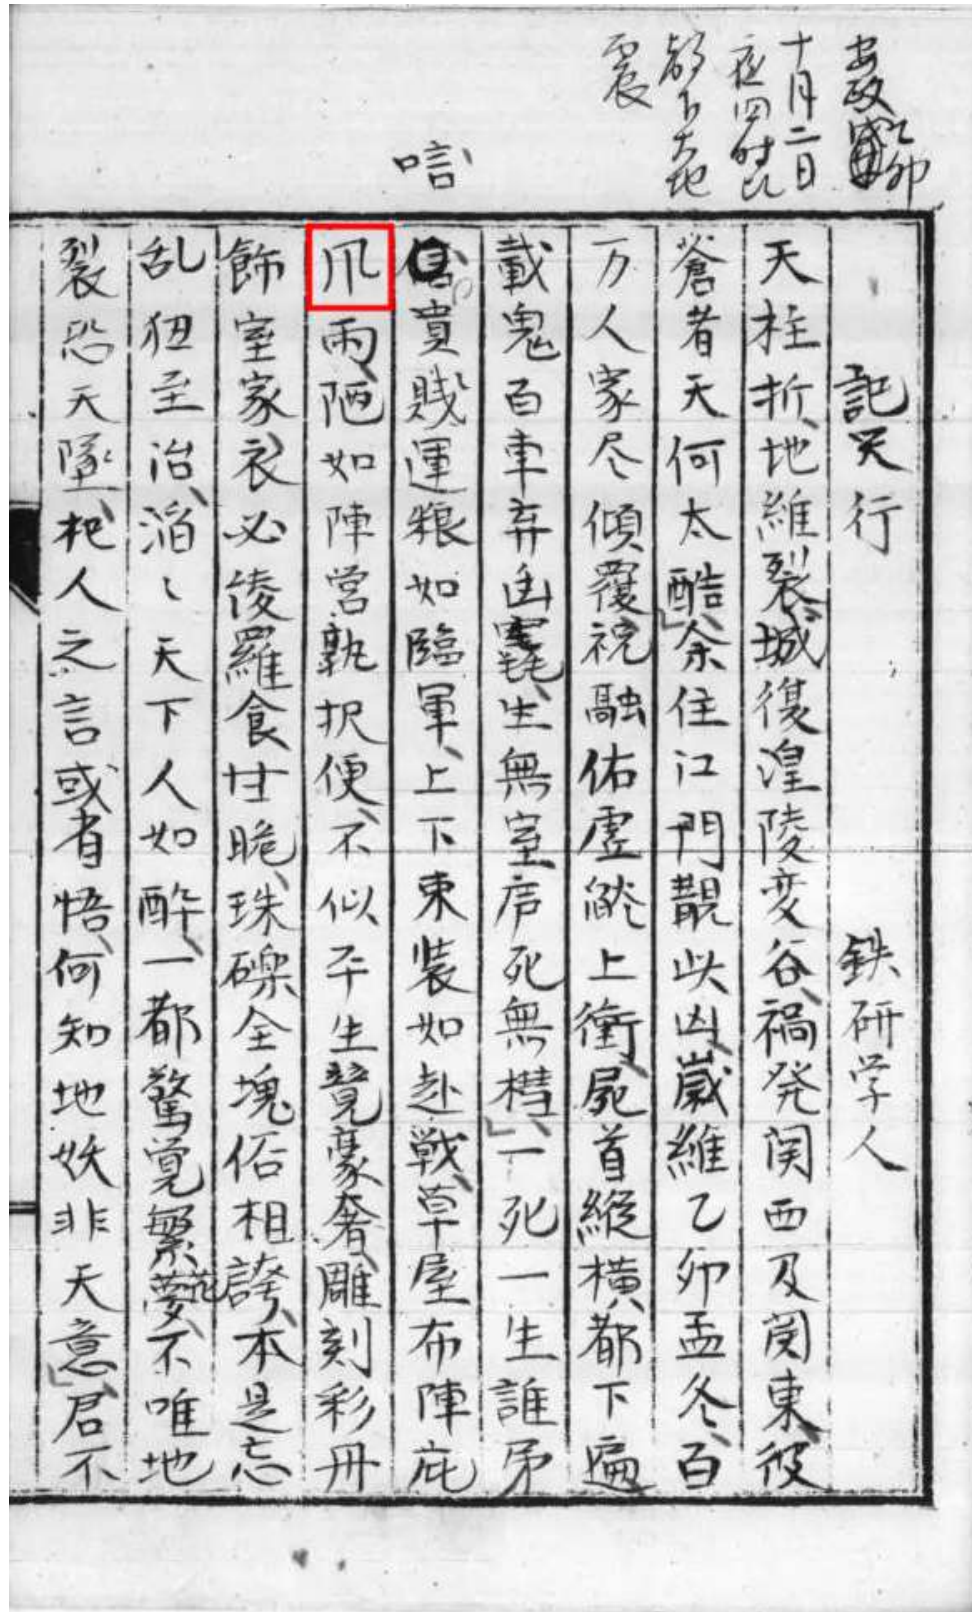 安政乙卯
十月二日
夜四時比
都下大地
震
唁
記天行 鉄研学人
天柱折、地維裂、城復湟陵変谷、禍発関西及関東、彼
蒼者天何太酷、余住江門覩此凶、歳維乙卯孟冬、百
万人家尽傾覆、祝融佑虐燄上衝、屍首縦横都下遍
載鬼百車弃幽竁、生無室戸死無槥、一死一生誰弟
貴賤運粮如臨軍、上下東装如赴戦、草屋布陣庇
爪雨、陋如陣営孰択便、不似平生競豪奢、雕刻彩丹
飾室家、衣必綾羅食甘脆、珠礫全塊俗相誇、本是忘
乱狃至治、滔〻天下人如酔、一都驚覚繁花夢、不唯地
裂恐天墜、杞人之言或省悟、何知地妖非天意、君不